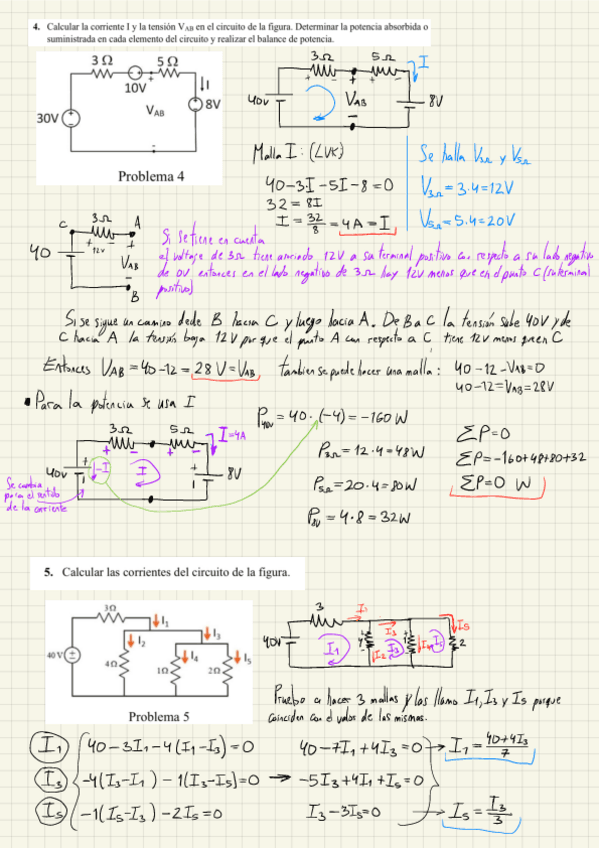 4. Calcular la corriente I y la tensión VAB en el circuito de la figura. Determinar la potencia absorbida o
suministrada en cada elemento del circuito y realizar el balance de potencia.
3 Ω 5 Ω
10V I
30V VAB 8V
Problema 4
3Ω 5Ω I
40V VAB 8V
Malla I: (LVK)
40-3·I-5I-8=0
32 = 8I
I = 32/8 = 4A = I
Se halla V3Ω y V5Ω
V3Ω = 3·4=12V
V5Ω = 5·4=20V
C 3Ω A
+ 12V -
40 VAB
B
Si se tiene en cuenta
el voltage de 3Ω tiene anociado 12V a su terminal positivo con respecto a su lado negativo
de 0V entonces en el lado negativo de 3Ω hay 12V menos que en el punto C (su terminal
positivo)
Si se sigue un camino desde B hacia C y luego hacia A. De B a C la tensión sube 40V y de
C hacia A la tensión baja 12V porque el punto A con respecto a C tiene 12V menos que en C
Entonces VAB = 40-12 = 28V = VAB
tambien se puede hacer una malla: 40-12-VAB=0
40-12=VAB=28V
• Para la potencia se usa I
3Ω 5Ω I=4A
40V -I I 8V
Se cambia
para el sentido
de la corriente
P40V = 40·(-4) = -160W
P3Ω = 12·4=48W
P5Ω = 20·4=80W
P8V = 4·8=32W
ΣP=0
ΣP=-160+48+80+32
ΣP=0 W
5. Calcular las corrientes del circuito de la figura.
3Ω I1
I2 I3
40 V 4Ω I4 I5
1Ω 2Ω
Problema 5
3 I1
40V I1 4 I2 I3 I3 1 I4 I5 I5 2
Pruebo a hacer 3 mallas y las llamo I1, I3 y I5 porque
coinciden con el valor de las mismas.
I1 40-3I1-4(I1-I3)=0 40-7I1+4I3=0 → I1 = 40+4I3/7
I3 -4(I3-I1)-1(I3-I5)=0 → -5I3+4I1+I5=0
I5 -1(I5-I3)-2I5=0 I3-3I5=0 → I5 = I3/3